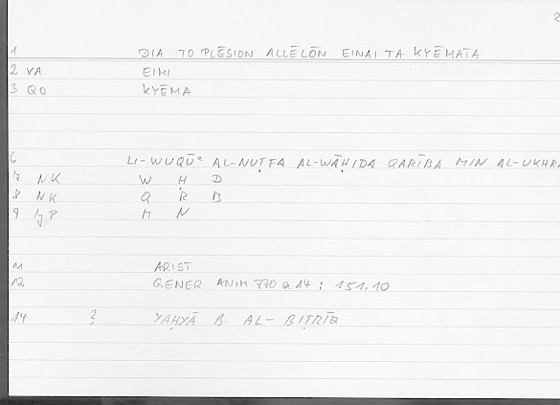 2
1 DIA TO PLĒSION ALLĒLŌN EINAI TA KYĒMATA
2 VA EIMI
3 QO KYĒMA
6 LI-WUQŪʿ AL-NUṬFA AL-WĀḤIDA QARĪBA MIN AL-UKHRĀ
7 NK W Ḥ D
8 NK Q R B
9 P M N
11 ARIST
12 GENER ANIM 770 a 14 ; 151,10
14 ? YAḤYĀ B. AL-BIṬRĪQ